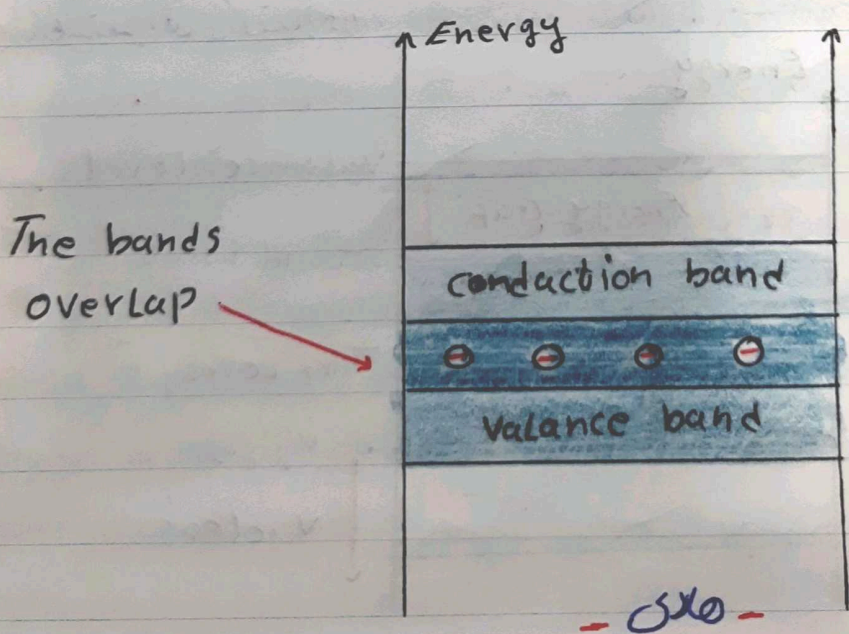 Energy
The bands
overlap
condaction band
⊖ ⊖ ⊖ ⊖
Valance band